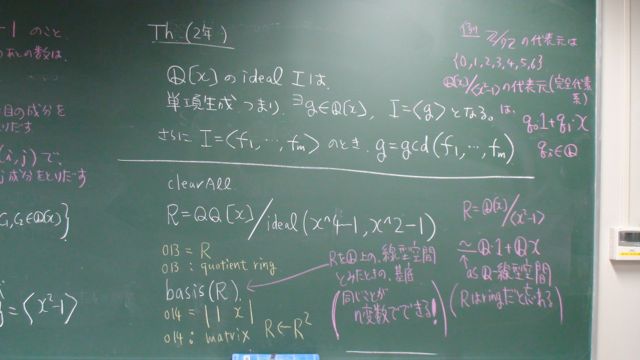 -1 のこと.
の数は.
目の成分を
りだす
(i,j)で、
j成分をとりだす
G₁,G₂∈Q[x]}
= <x²-1>
Th (2年)
Q[x] の ideal I は、
単項生成 つまり、∃g∈Q[x], I=<g> となる。
さらに I=<f₁,…,fₘ> のとき. g=gcd(f₁,…,fₘ)
clearAll
R=QQ[x]/ideal(x^4-1,x^2-1)
o13 = R
o13 : quotient ring
basis(R)
o14 = | 1 x |
o14 : matrix R←R²
RをQ上の、線型空間
とみたときの、基底
(同じことが
n変数でできる!)
例 Z/7Z の代表元は
{0,1,2,3,4,5,6}
Q[x]/<x²-1>の代表元(完全代表
系)
は、
q₀1+q₁x
qᵢ∈Q
R=Q[x]/<x²-1>
≃ Q・1+Qx
↑
as Q-線型空間
(Rはringだと忘れる)